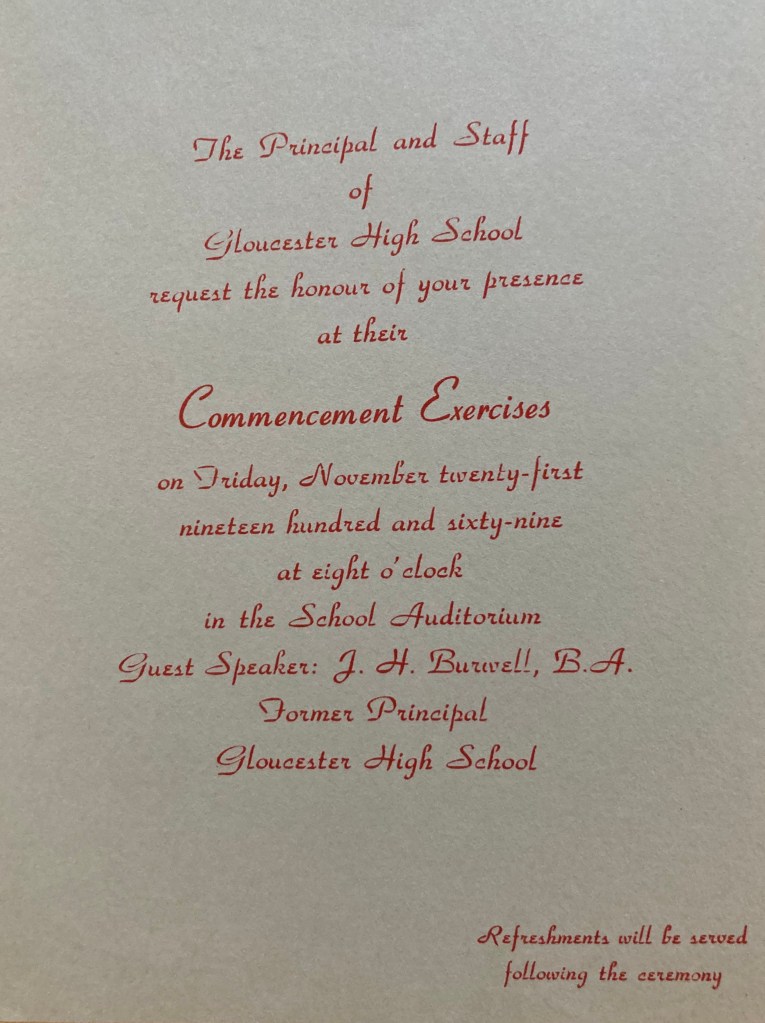 The Principal and Staff
of
Gloucester High School
request the honour of your presence
at their
Commencement Exercises
on Friday, November twenty-first
nineteen hundred and sixty-nine
at eight o'clock
in the School Auditorium
Guest Speaker: J. H. Burwell, B.A.
Former Principal
Gloucester High School
Refreshments will be served
following the ceremony